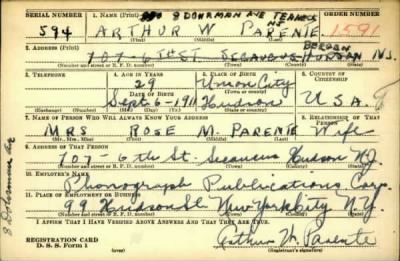 SERIAL NUMBER 1. NAME (Print) 8 DOHRMAN AVE TEANECK NJ ORDER NUMBER
594 ARTHUR W PARENTE 1591
(First) (Middle) (Last)
2. ADDRESS (Print) BERGEN
107-6TH ST SECAUCUS HUDSON NJ.
(Number and street or R. F. D. number) (Town) (County) (State)
3. TELEPHONE 4. AGE IN YEARS 5. PLACE OF BIRTH 6. COUNTRY OF CITIZENSHIP
29 Union City
DATE OF BIRTH (Town or county)
Sept-6-1911 Hudson U.S.A.
(Exchange) (No.) (Mo.) (Day) (Yr.) (State or country)
7. NAME OF PERSON WHO WILL ALWAYS KNOW YOUR ADDRESS 8. RELATIONSHIP OF THAT PERSON
MRS ROSE M. PARENTE Wife
(Mr., Mrs., Miss) (First) (Middle) (Last)
9. ADDRESS OF THAT PERSON
107-6th St. Secaucus Hudson N.J.
(Number and street or R. F. D. number) (Town) (County) (State)
10. EMPLOYER'S NAME
Phonograph Publications Corp.
11. PLACE OF EMPLOYMENT OR BUSINESS
99 Hudson St. New York City N.Y.
(Number and street or R. F. D. number) (Town) (County) (State)
I AFFIRM THAT I HAVE VERIFIED ABOVE ANSWERS AND THAT THEY ARE TRUE.
REGISTRATION CARD
D. S. S. Form 1
Arthur W Parente